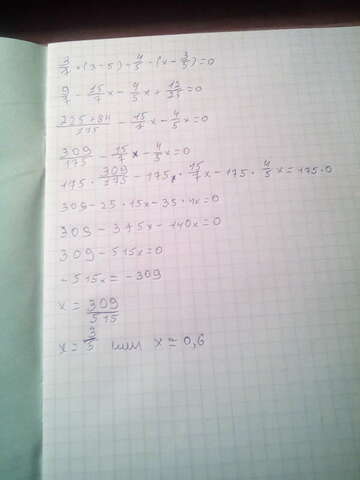 3/7 · (3 - 5) - 4/5 · (x - 3/5) = 0
9/7 - 15/7 x - 4/5 x + 12/25 = 0
225+84/175 - 15/7 x - 4/5 x = 0
309/175 - 15/7 x - 4/5 x = 0
175 · 309/175 - 175x · 15/7 x - 175 · 4/5 x = 175 · 0
309 - 25 · 15x - 35 · 4x = 0
309 - 375x - 140x = 0
309 - 515x = 0
- 515x = -309
x = 309/515
x = 3/5 или x = 0,6